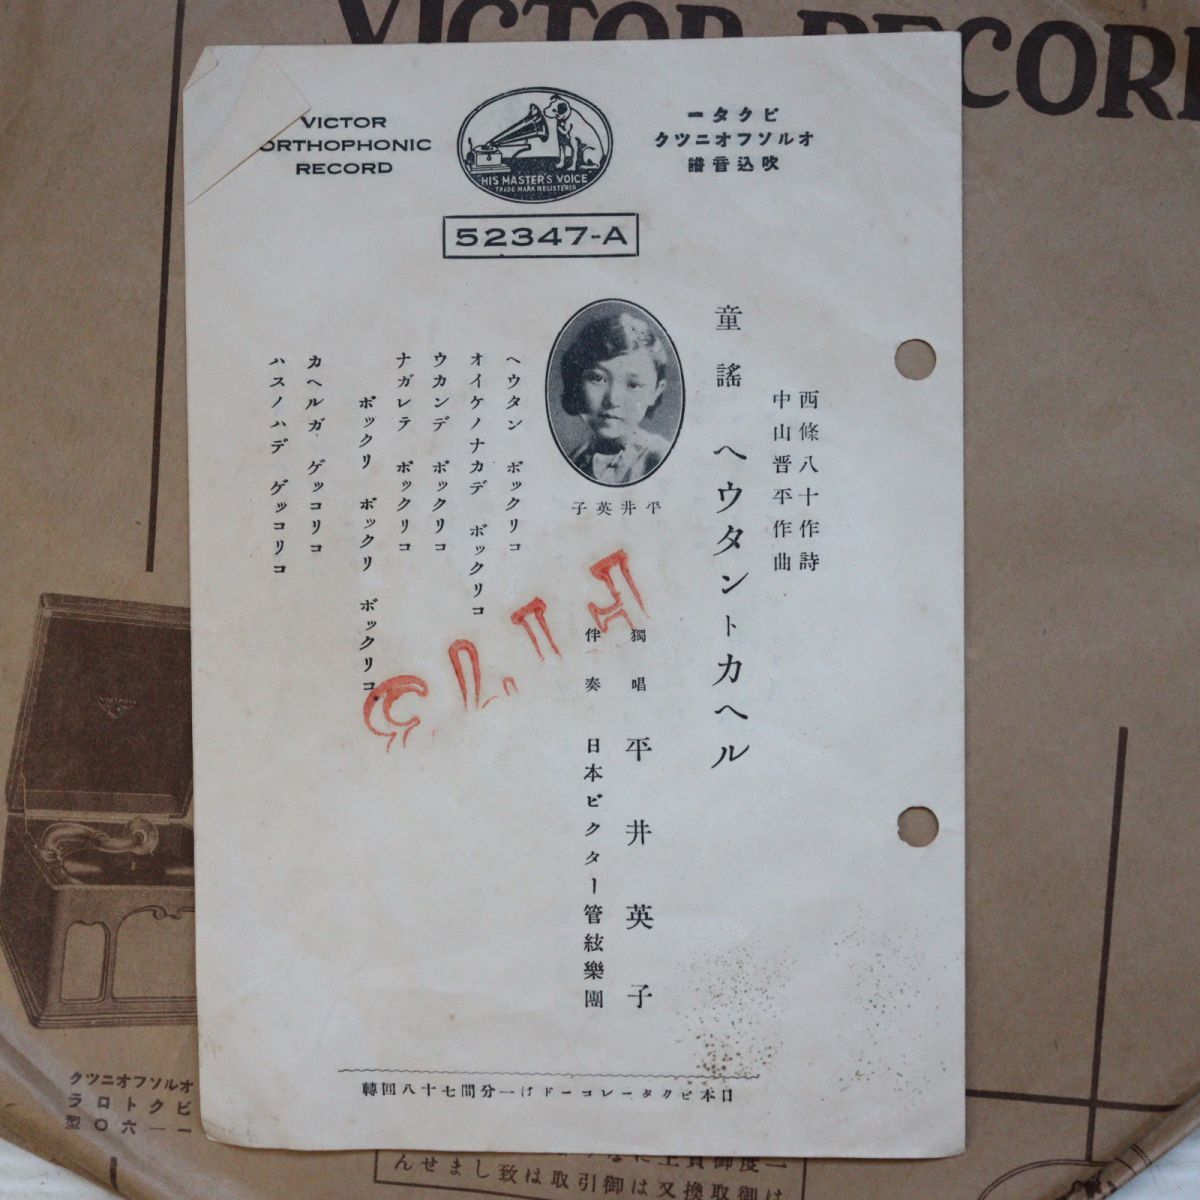 VICTOR RECOR
VICTOR
ORTHOPHONIC
RECORD
HIS MASTER'S VOICE
TRADE MARK REGISTERED
ービクタ
クツニオフソルオ
譜音込吹
52347-A
西條八十作詩
中山晋平作曲
童謠 ヘウタントカヘル
子英井平
獨唱 平井英子
伴奏 日本ビクター管絃樂團
ヘウタン ボックリコ
オイケノナカデ ボックリコ
ウカンデ ボックリコ
ナガレテ ボックリコ
ボックリ ボックリ ボックリコ
カヘルガ ゲッコリコ
ハスノハデ ゲッコリコ
轉回八十七間分一はドーコレータクビ本日
クツニオフソルオ
ラロトクビ
型〇六一一
んせまし致は引取御は又換取御は